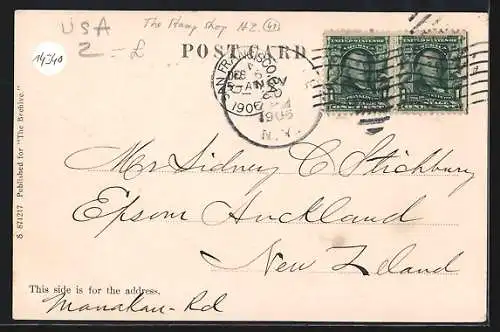 USA
The Stamp Shop N.Z. (43)
2 - £
14340
POST CARD
SAN FRANCISCO, CAL.
DEC 6
5 - AM
1906
1906
N.Y.
UNITED STATES
UNITED STATES
Mr Sidney C Stichbury
Epsom Auckland
New Zeland
This side is for the address.
Manakau - Rd
S 871217 Published for "The Beehive."